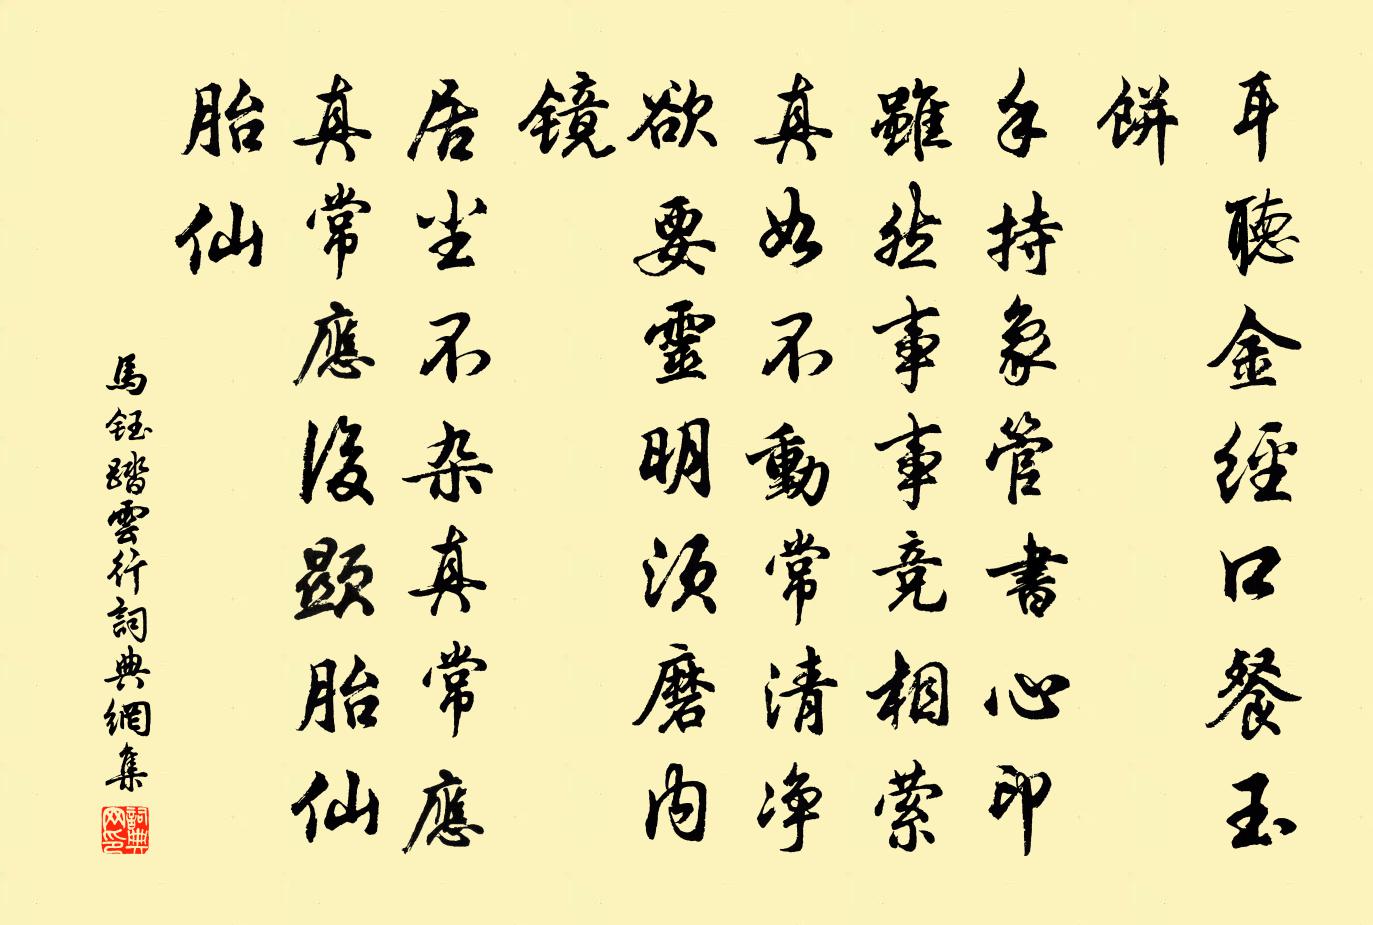 耳聽金經口餐玉
餅
手持象管書心印
雖然事事竞相萦
真如不動常清净
欲要靈明须磨内
镜
居尘不杂真常應
真常應後顕胎仙
胎仙
馬鈺踏雲行詞典網集
詞典网印